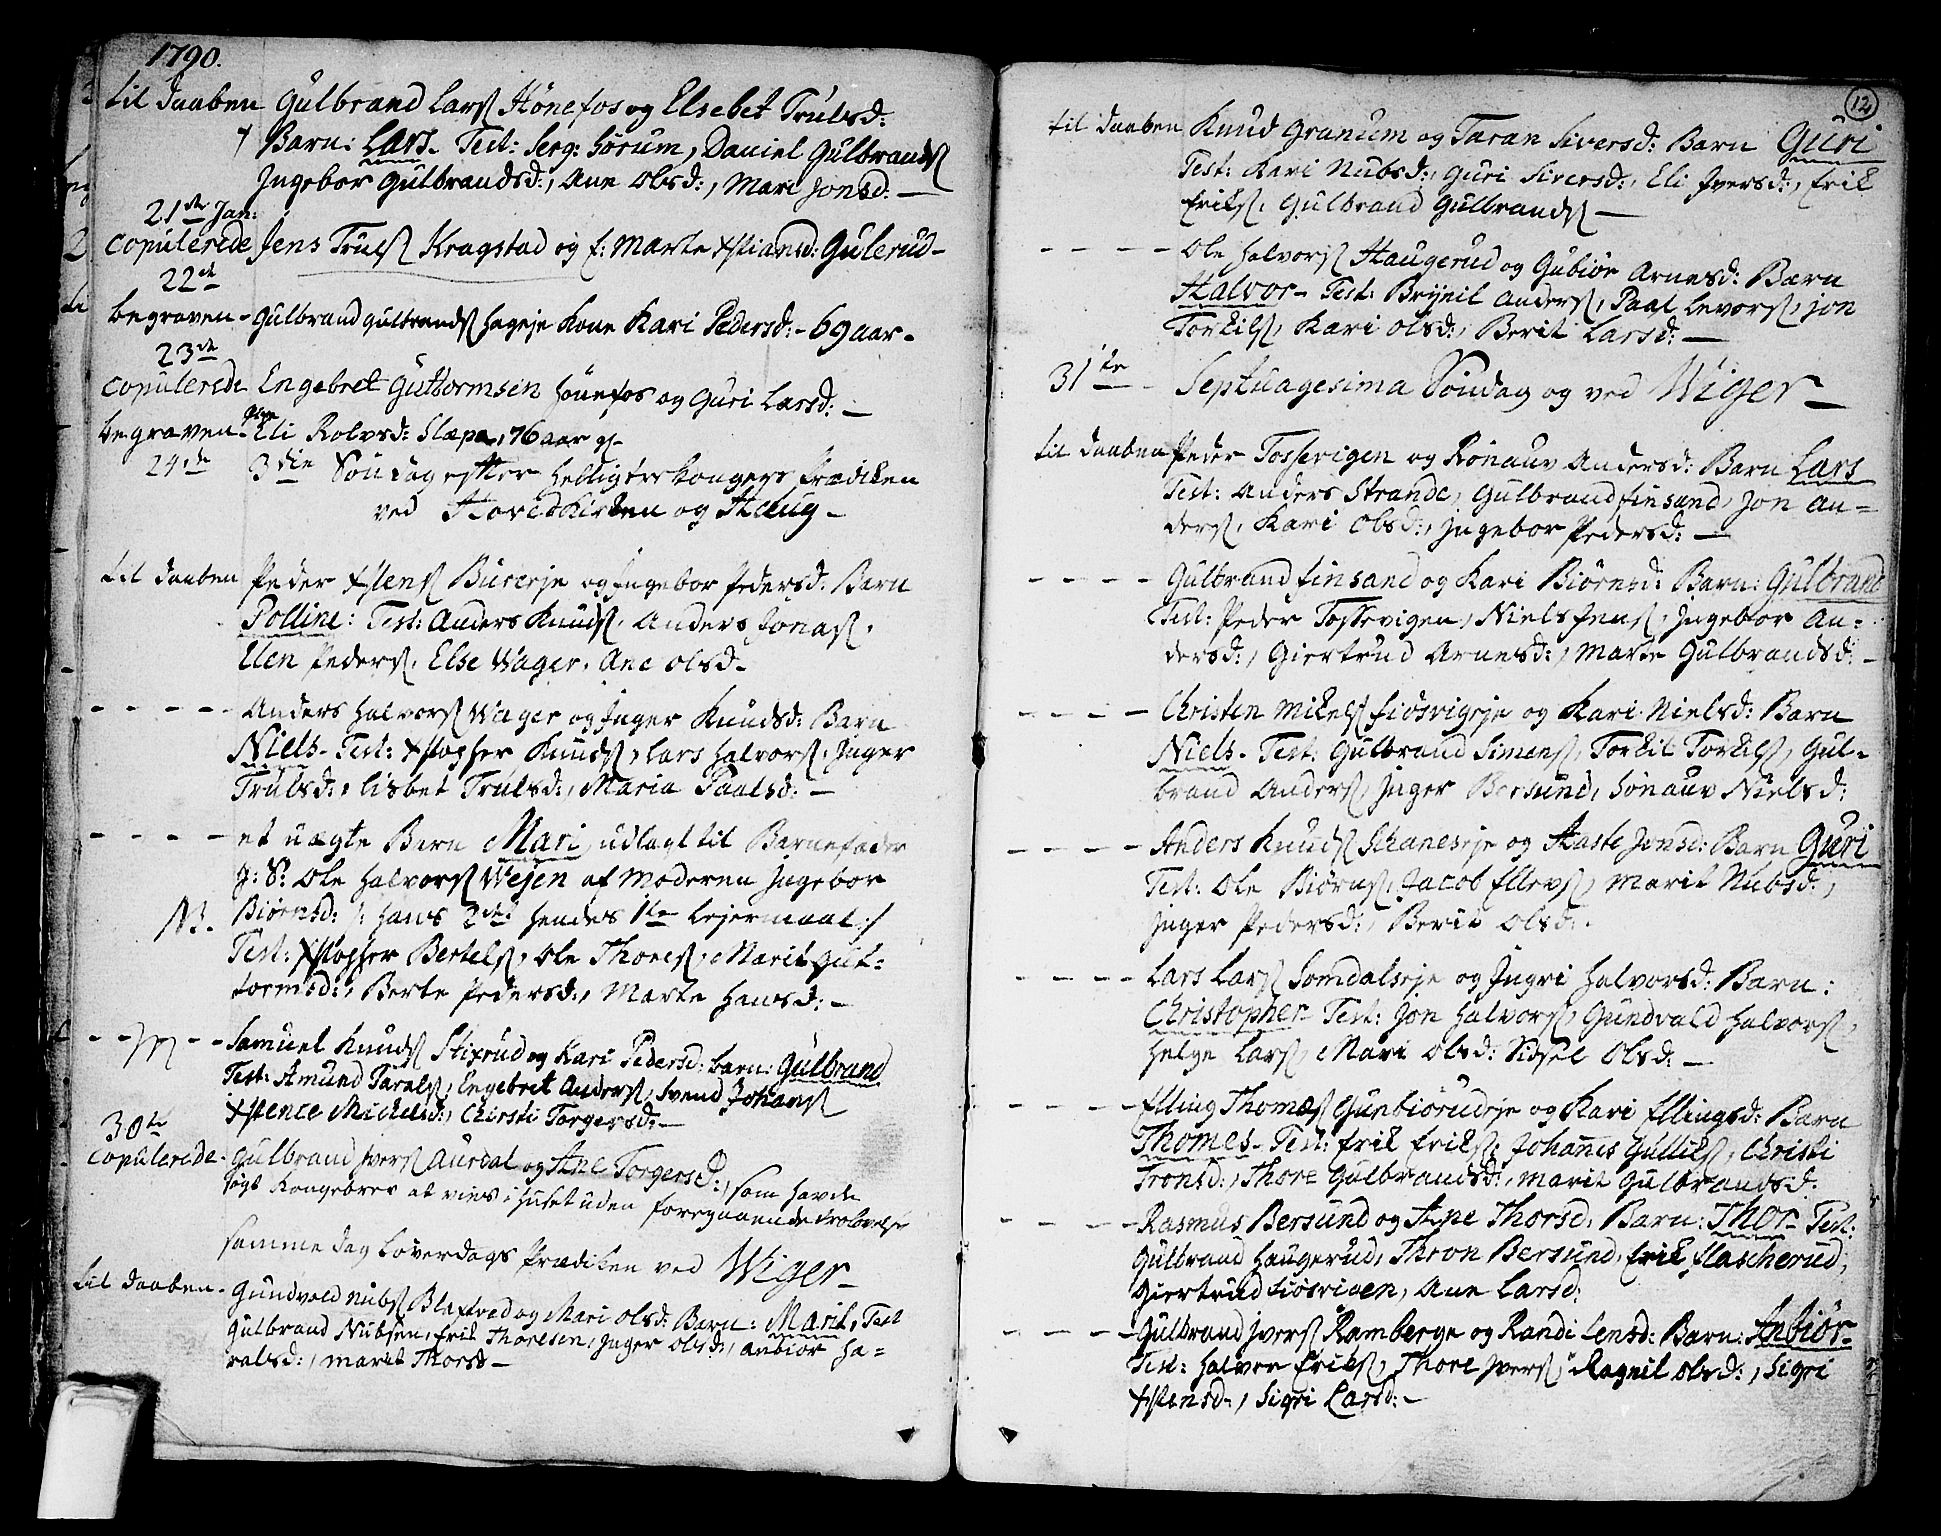 1790.
til Daaben Gulbrand Larsſ Hönefos og Elsebet Trulsd:
Barn: Lars. Test: Serg: Sörum, Daniel Gulbrandſ
Ingebor Gulbrandsd:, Ane Olsd:, Mari Jonsd: —
21de Jan:
copulerede Jens Trulſ Kragstad og f: Marte Xstiansd: Gulerud –
22de
begraven – Gulbrand gulbrandſ hageje Kone Kari Pedersd: – 69 aar –
23de
copulerede Engebret Guttormsen Hönefos og Guri Larsd: —
begraven – Pige Eli Rolvsd: Slæpa, 76 aar gl –
24de 3die Söndag efter Helligtrekongers Prædiken
ved Hovedkirken og Haug –
til Daaben Peder Xstensſ Burerje og Ingebor Pedersd: Barn
Polline: Test: Anders Knudſ, Anders Jonaſ,
Elen Pederſ, Else Wager, Ane Olsd –
– – – – – Anders Halvorſ Wager og Inger Knudsd: Barn
Niels – Test: Xstopher Knudſ, Lars Halvorſ, Inger
Trulsd:, Lisbet Trulsd:, Maria Paalsd: —
– – – – et uægte Barn Mari, udlagt til Barnefader
g: S: Ole Halvorſ Wejen af Moderen Ingebor
NB. Biörnsd: /: hans 2det hendes 1te Lejermaal :/
Test: Xstopher Bertelſ, Ole Thoreſ, Marit Gut=
tormsd:, Berte Pedersd:, Marte Hansd: –
– – – – Samuel Knudſ Stixrud og Kari Pedersd: Barn: Gulbrand
Test: Amund Paralſ, Engebret Anderſ, Svend Johanſ
Xstence Mickelsd:, Chersti Torgersd: —
30te
copulerede – Gulbrand Iverſ Aurdal og Ane Torgersd:, som havde
sögt Kongebrev at vies i Huset uden foregaaende trolovelse
samme dag Löverdags Prædiken ved Wiger –
til Daaben – Gundvald Nubſ Blaffred og Mari Olsd: Barn: Marit, Test
Gulbrand Nubsen, Erik Thoresen, Inger Olsd:, Anbiör Ha=
ralsd:, Marit Thorsd –
12
til Daaben Knud Granum og Taran Siversd: Barn Guri
Test: Kari Nubsd:, Guri Siversd:, Eli Iversd:, Erik
Erikſ, Gulbrand Gulbrandſ —
– – – – Ole Halvorſ Haugerud og Gubiör Arnesd: Barn
Halvor – Test: Brynil Anderſ, Paal Levorſ, Jon
Torkilſ, Kari Olsd:, Berit Larsd: —
31te – Septuagesima Söndag og ved Wiger —
til Daaben Peder Tosservigen og Rönauv Andersd: Barn Lars
Test: Anders Strande, Gulbrand Finsand, Jon An=
derſ, Kari Olsd:, Ingebor Pedersd: —
– – – – Gulbrand Finsand og Kari Biörnsd: Barn: Gulbrand
Test: Peder Tossevigen, Niels Jenſ, Ingebor An=
dersd:, Giertrud Arnesd:, Marte Gulbrandsd: –
– – – – Christen Mikelſ Fiösvigeje og Kari Nielsd: Barn
Niels – Test: Gulbrand Simenſ, Torkil Torkilſ, Gul=
brand Anderſ, Inger Bersund, Sönauv Nielsd:
– – – – Anders Knudſ Skaneseje og Haste Jonsd: Barn Guri
Test: Ole Biörnſ, Jacob Ellevſ, Marit Nubsd:,
Inger Pedersd:, Berit Olsd: .
– – – – Lars Larſ Somdalseje og Ingri Halvorsd: Barn:
Christopher – Test: Jon Halvorſ, Gundvald Halvorſ,
Helge Larſ, Mari Olsd: Sidsel Olsd: —
– – – – Elling Thomeſ Gunbiörudeje og Kari Ellingsd: Barn
Thomes – Test: Erik Erikſ, Johannes Gullikſ, Christi
Tronsd:, Thore Gulbrandsd:, Marit Gulbrandsd:
– – – – Rasmus Bersund og Ane Thorsd: Barn: Thor – Test:
Gulbrand Haugerud, Thron Bersund, Erik Flascherud,
Giertrud Fiösvigen, Ane Larsd:
– – – – Gulbrand Iverſ Ramberge og Randi Lensd: Barn: Anbiör –
Test: Halvor Erikſ, Thore Iverſ, Ragnil Olsd:, Sigri
Xstensd:, Sigri Larsd: –